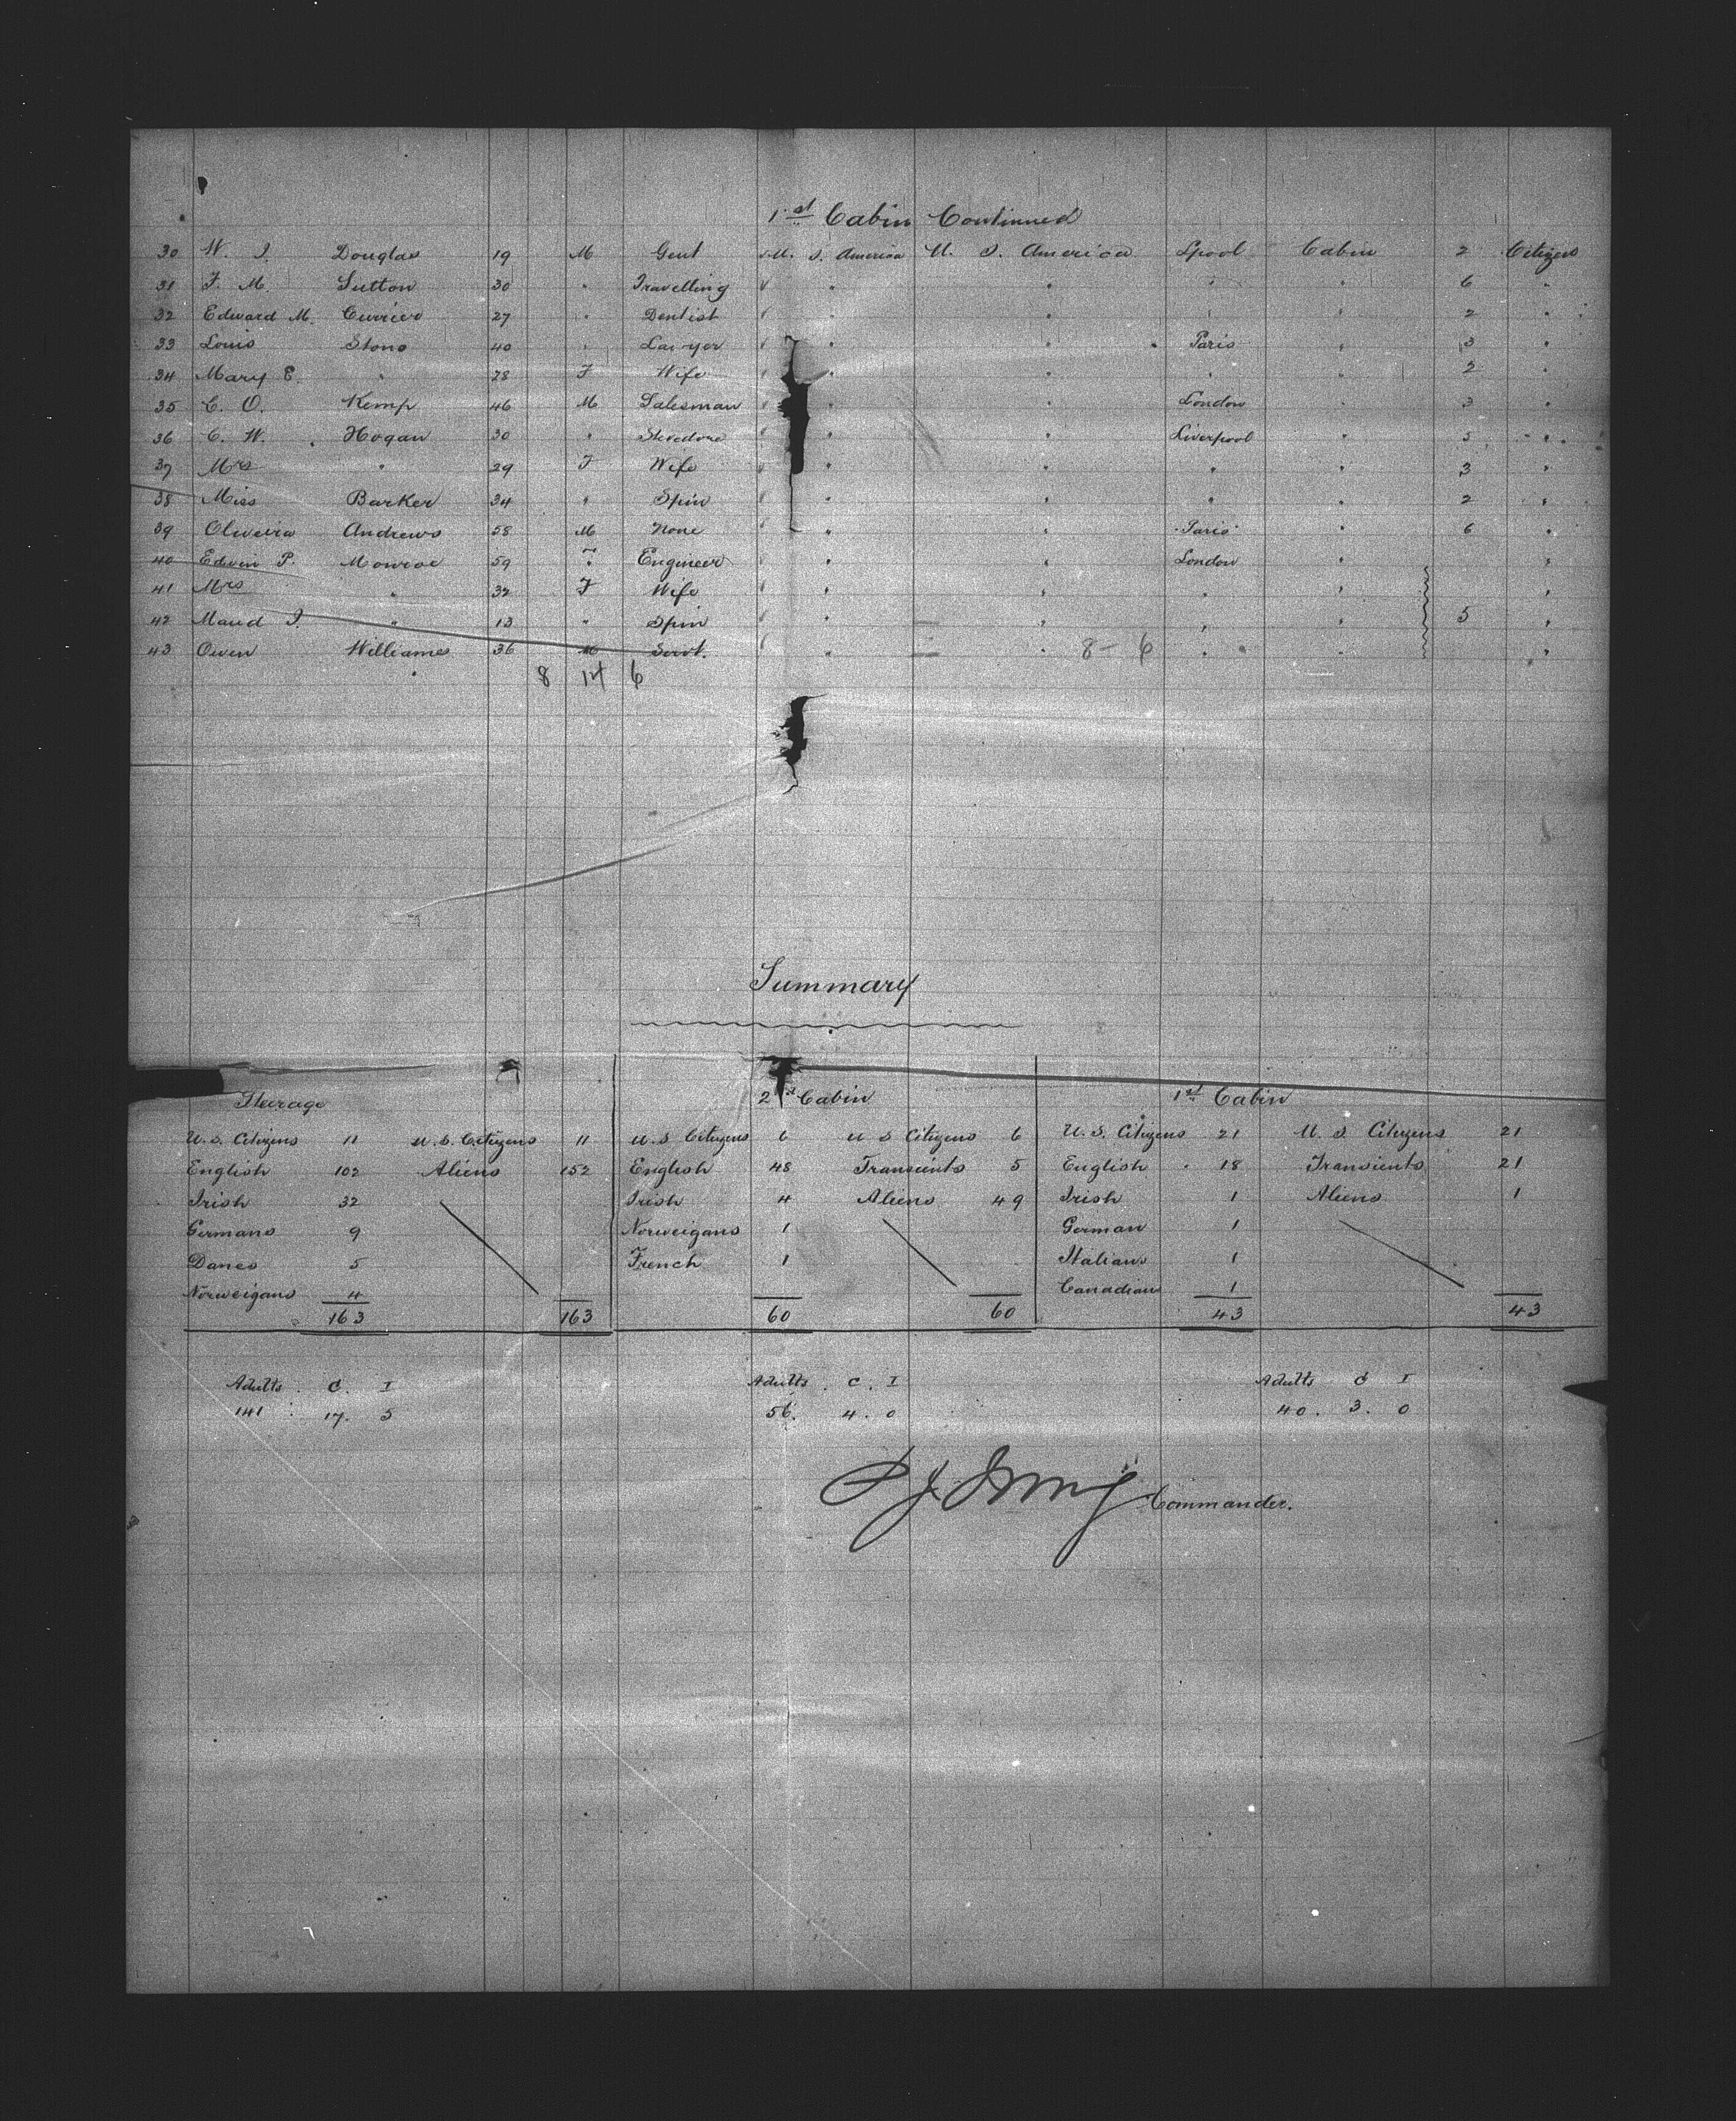 1st Cabin Continued
30 W. J. Douglas 19 M Gent U. S. America U. S. America Lpool Cabin 2 Citizen
31 F. M. Sutton 30 " Travelling " " " " 6 "
32 Edward M. Currier 27 " Dentist " " " " 2 "
33 Louis Stono 40 " Lawyer " " Paris " 3 "
34 Mary E. " 28 F Wife " " " " 2 "
35 C. O. Kemp 46 M Salesman " " London " 3 "
36 C. W. Hogan 30 " Stevedore " " Liverpool " 5 "
37 Mrs " 29 F Wife " " " " 3 "
38 Miss Barker 34 " Spin " " " " 2 "
39 Oliveira Andrews 58 M None " " Paris " 6 "
40 Edwin P. Monroe 59 " Engineer " " London " "
41 Mrs " 32 F Wife " " " " "
42 Maud I. " 13 " Spin " " " " 5 "
43 Owen Williams 36 M Servt. " " 8 - 6 " " "
8 14 6
Summary
Sterage 2nd Cabin 1st Cabin
U.S. Citizens 11 U.S. Citizens 11 U S Citizens 6 U S Citizens 6 U.S. Citizens 21 U S Citizens 21
English 102 Aliens 152 English 48 Transients 5 English 18 Transients 21
Irish 32 Irish 4 Aliens 49 Irish 1 Aliens 1
Germans 9 Norweigans 1 German 1
Danes 5 French 1 Italians 1
Norweigans 4 Canadians 1
163 163 60 60 43 43
Adults . C. I Adults . C. I Adults C I
141 17. 5 56. 4. 0 40. 3. 0
Commander.